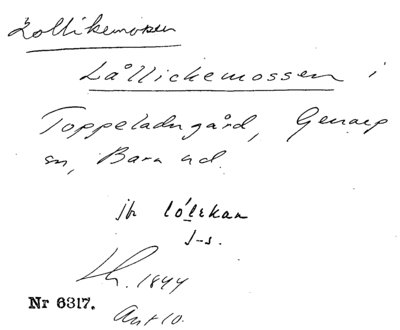 Lollikemosen
Lållickemossen i
Toppeladugård, Genarp
sn, Bara hd.
jfr lólekan
J-s.
Lh. 1844
Nr 6317. Ant 10.